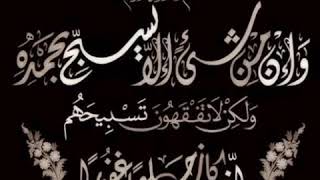 وَإِنْ مِنْ شَيْءٍ إِلَّا يُسَبِّحُ بِحَمْدِهِ
وَلَكِنْ لَا تَفْقَهُونَ تَسْبِيحَهُمْ
إِنَّهُ كَانَ حَلِيمًا غَفُورًا